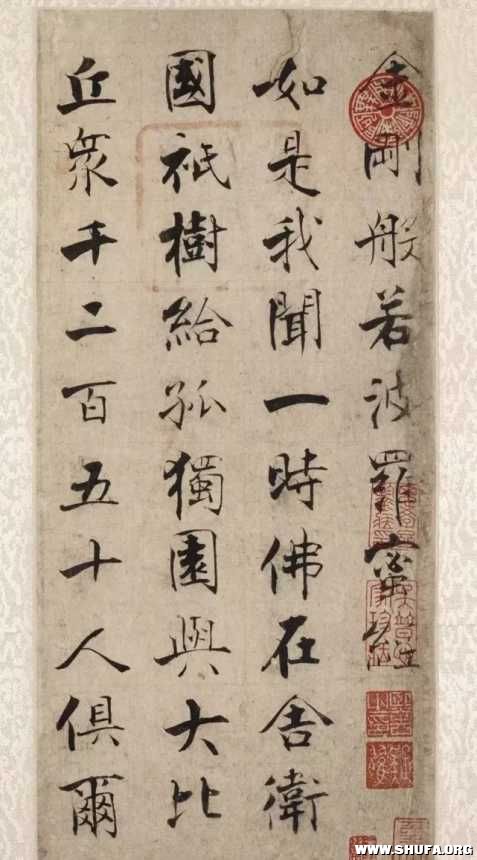 金剛般若波羅蜜經
如是我聞一時佛在舍衛
國祇樹給孤獨園與大比
丘衆千二百五十人俱爾
WWW.SHUFA.ORG